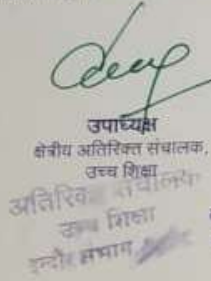 उपाध्यक्ष
क्षेत्रीय अतिरिक्त संचालक,
उच्च शिक्षा
अतिरिक्त संचालक
उच्च शिक्षा
इन्दौर संभाग